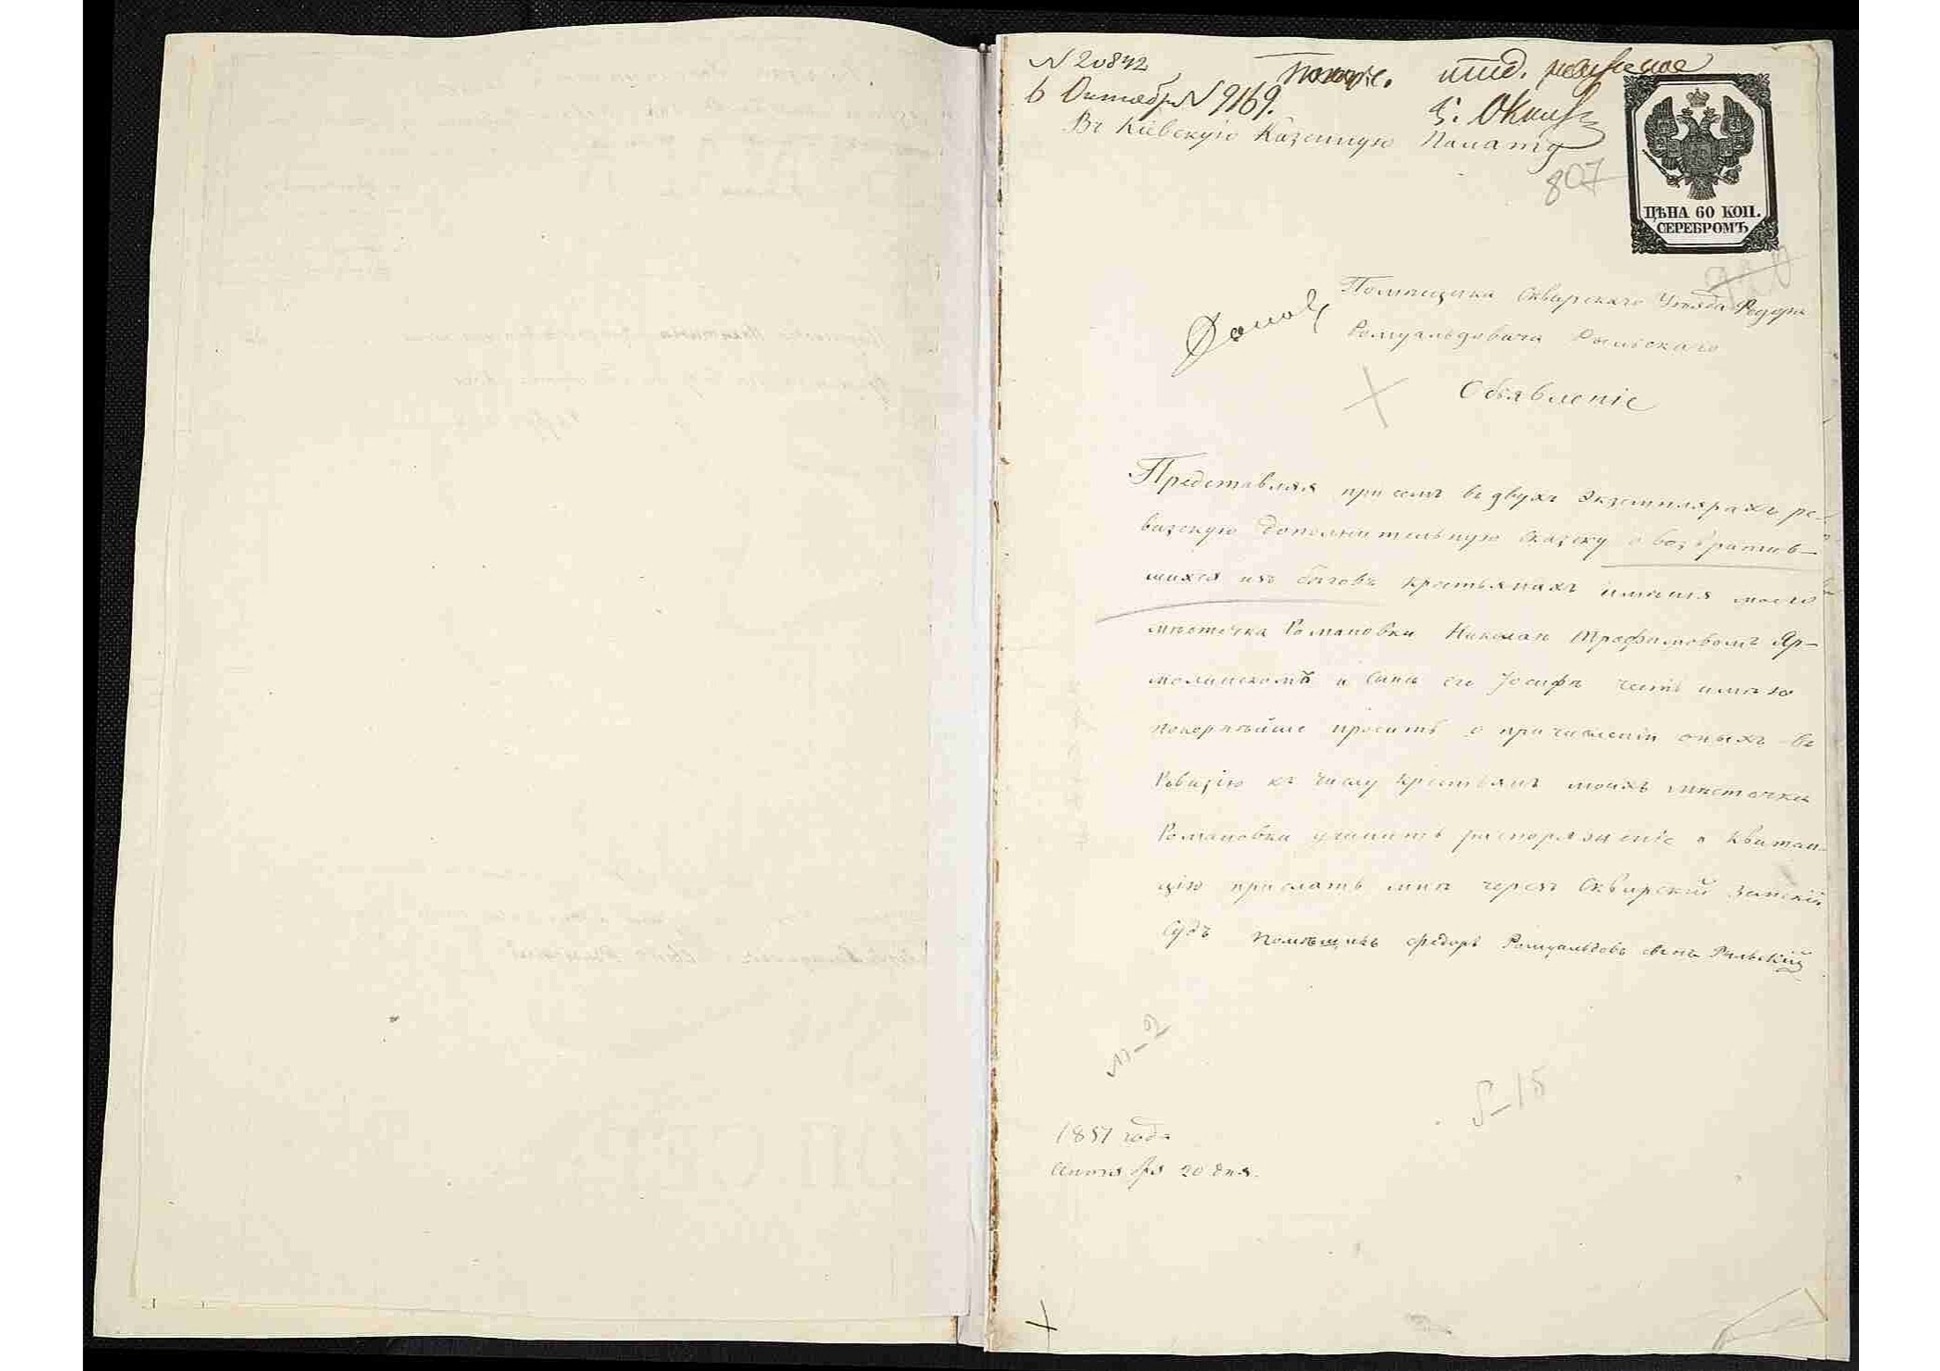 N 20842
6 Октября N 9169.
Въ Кіевскую Казенную Палату
807
ЦѢНА 60 КОП.
СЕРЕБРОМЪ
Помѣщика Сквирскаго Уѣзда Федора
Ромуальдовича Рыльскаго
Объявленіе
Представляя при семъ въ двухъ экземплярахъ ре-
визскую дополнительную сказку о возвратив-
шихся изъ бѣговъ крестьянахъ имѣнія моего
мѣстечка Романовки Николаѣ Трофимовомъ Яр-
молинскомъ и сынѣ его Іосифѣ честь имѣю
покорнѣйше просить о причисленіи оныхъ въ
Ревизію къ числу крестьянъ моихъ мѣстечка
Романовки учинить распоряженіе и квитан-
цію прислать мнѣ черезъ Сквирскій Земскій
Судъ Помѣщикъ Федоръ Ромуальдовъ сынъ Рыльскій
1857 года
Сентября 20 дня.